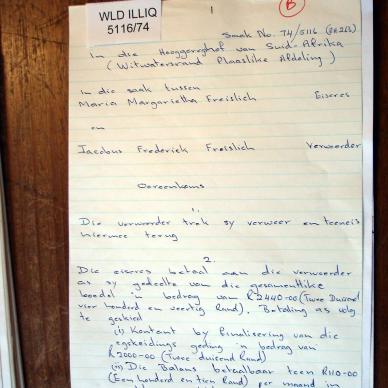 WLD ILLIQ
5116/74
1
B
Saak No. 74/5116
In die Hooggeregshof van Suid-Afrika
(Witwatersrand Plaaslike Afdeling)
In die saak tussen
Maria Margarietha Freislich Eiseres
en
Jacobus Frederick Freislich Verweerder
Ooreenkoms
1.
Die verweerder trek sy verweer en teeneis
hiermee terug
2.
Die eiseres betaal aan die verweerder
as sy gedeelte van die gesamentlike
boedel 'n bedrag van R2440-00 (Twee Duisend
vier honderd en veertig Rand). Betaling as volg
te geskied
(i) Kontant by finalisering van die
egskeidings geding 'n bedrag van
R2000-00 (Twee duisend Rand)
(ii) Die Balans betaalbaar teen R110-00
(Een honderd en tien Rand) per maand in